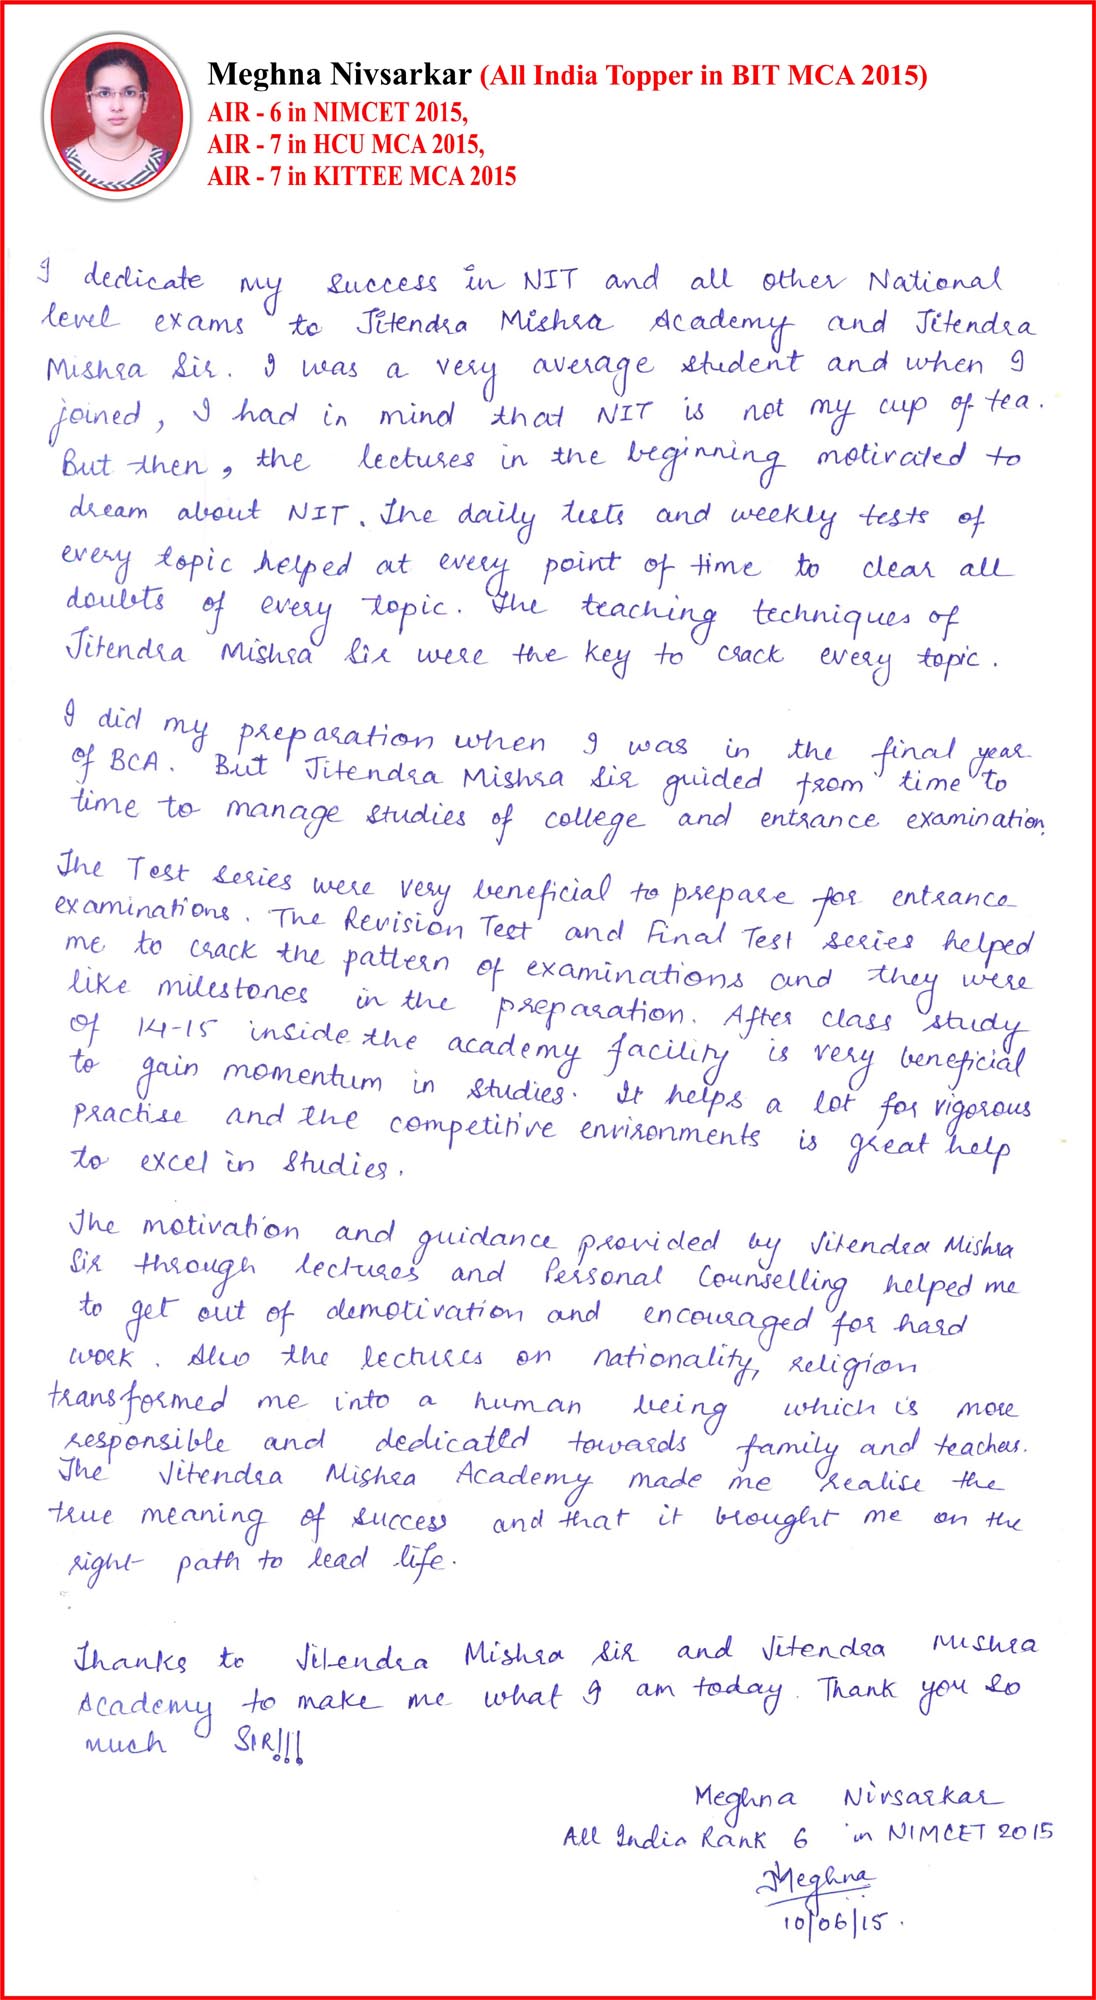 Meghna Nivsarkar (All India Topper in BIT MCA 2015)
AIR - 6 in NIMCET 2015,
AIR - 7 in HCU MCA 2015,
AIR - 7 in KITTEE MCA 2015
I dedicate my success in NIT and all other National
level exams to Jitendra Mishra Academy and Jitendra
Mishra Sir. I was a very average student and when I
joined, I had in mind that NIT is not my cup of tea.
But then, the lectures in the beginning motivated to
dream about NIT. The daily tests and weekly tests of
every topic helped at every point of time to clear all
doubts of every topic. The teaching techniques of
Jitendra Mishra Sir were the key to crack every topic.
I did my preparation when I was in the final year
of BCA. But Jitendra Mishra Sir guided from time to
time to manage studies of college and entrance examination.
The Test series were very beneficial to prepare for entrance
examinations. The Revision Test and Final Test series helped
me to crack the pattern of examinations and they were
like milestones in the preparation. After class study
of 14-15 inside the academy facility is very beneficial
to gain momentum in studies. It helps a lot for rigorous
practise and the competitive environments is great help
to excel in studies.
The motivation and guidance provided by Jitendra Mishra
Sir through lectures and Personal Counselling helped me
to get out of demotivation and encouraged for hard
work. Also the lectures on nationality, religion
transformed me into a human being which is more
responsible and dedicated towards family and teachers.
The Jitendra Mishra Academy made me realise the
true meaning of success and that it brought me on the
right path to lead life.
Thanks to Jitendra Mishra Sir and Jitendra Mishra
Academy to make me what I am today. Thank you so
much SIR!!!
Meghna Nivsarkar
All India Rank 6 in NIMCET 2015
Meghna
10/06/15.